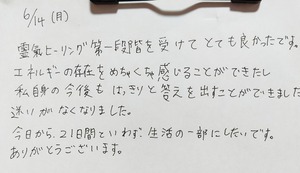 6/14 (月)
靈氣ヒーリング第一段階を受けてとても良かったです。
エネルギーの存在をめちゃくちゃ感じることができたし
私自身の今後も はっきりと答えを出すことができました
迷いがなくなりました。
今日から、21日間といわず、生活の一部にしたいです。
ありがとうございます。